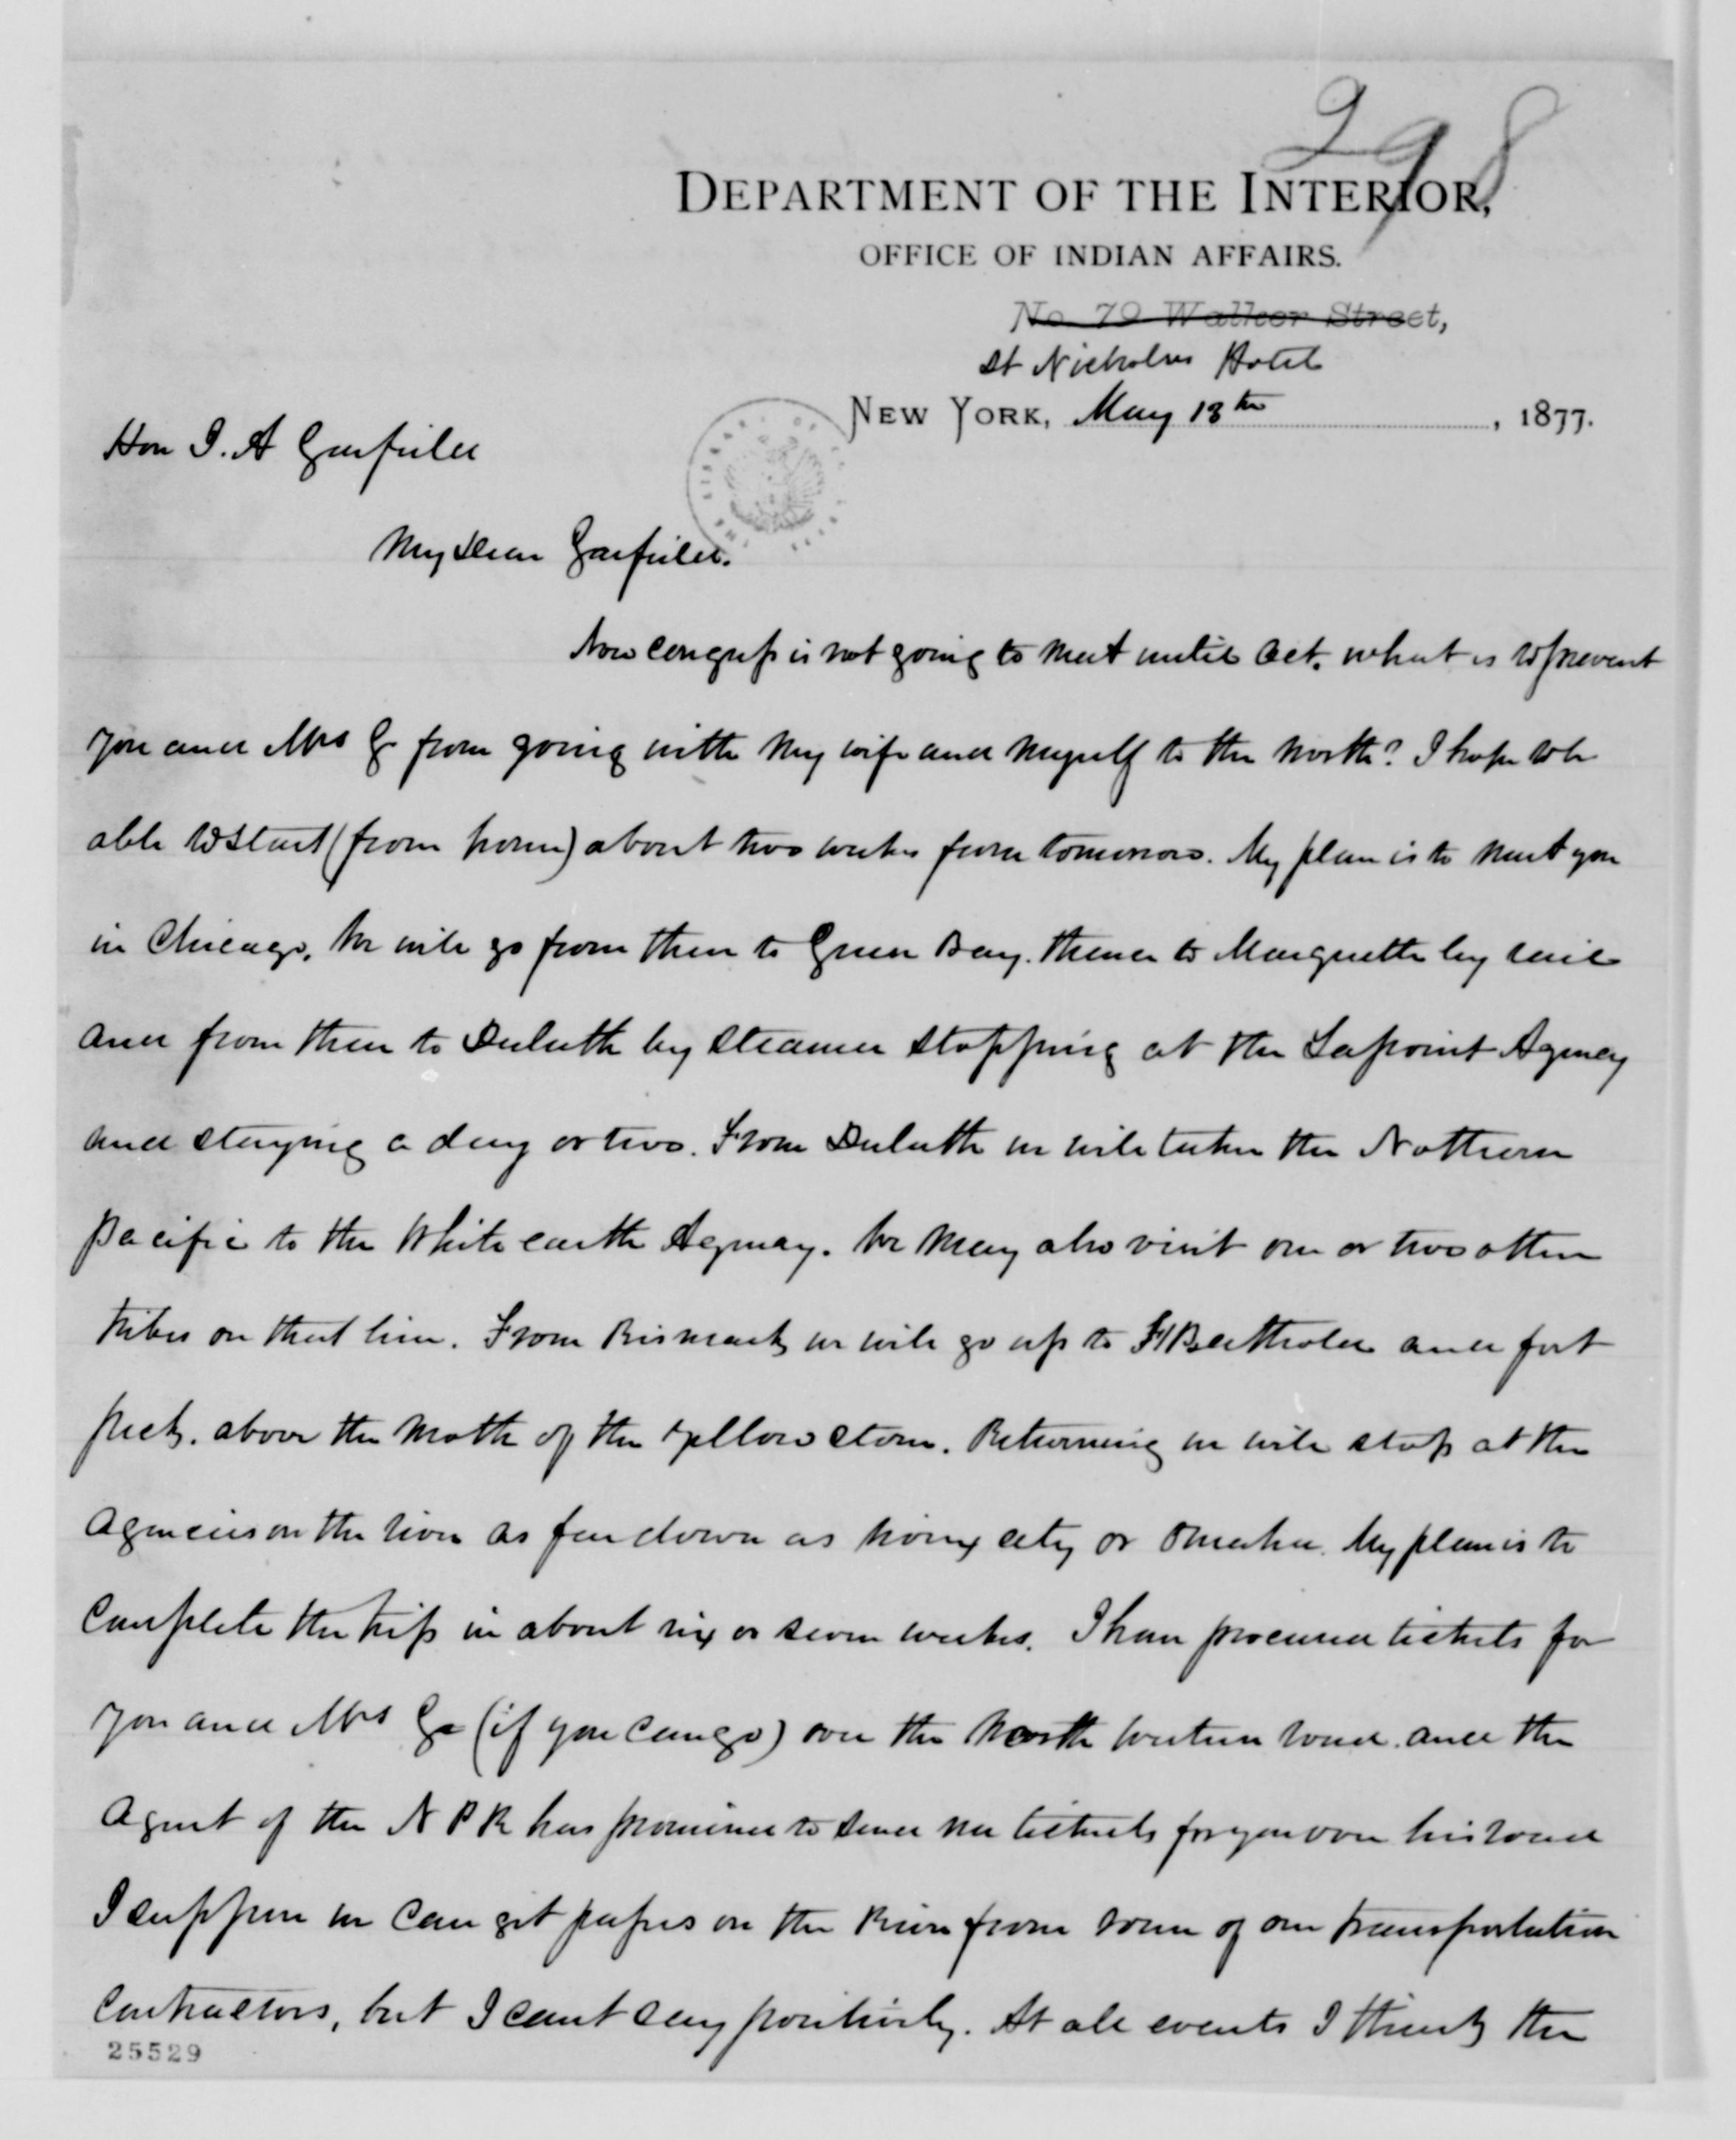 298
DEPARTMENT OF THE INTERIOR,
OFFICE OF INDIAN AFFAIRS.
No. 79 Walker Street,
St Nicholas Hotel
NEW YORK, May 13th, 1877.
Hon J. A Garfield
My Dear Garfield.
Now Congress is not going to meet until Oct, what is to prevent
you and Mrs G from going with my wife and myself to the north? I hope to be
able to start (from home) about two weeks from tomorrow. My plan is to meet you
in Chicago, We will go from there to Green Bay. thence to Marquette by rail
and from there to Duluth by steamer stopping at the Lapoint Agency
and staying a day or two. From Duluth we will take the Nothern
Pacific to the White earth Agency. We may also visit one or two other
tribes on that line. From Bismark we will go up to Ft Berthold and fort
peck. above the moth of the yellow stone. Returning we will stop at the
Agencies on the river as far down as Sioux city or Omaha. My plan is to
Complete the trip in about six or seven weeks. I have procured tickets for
you and Mrs G (if you can go) over the North western road. and the
Agent of the N P R has promised to send me tickets for you over his road
I suppose we can get passes on the River from some of our transportation
Contractors, but I cant say positively. At all events I think the
25529